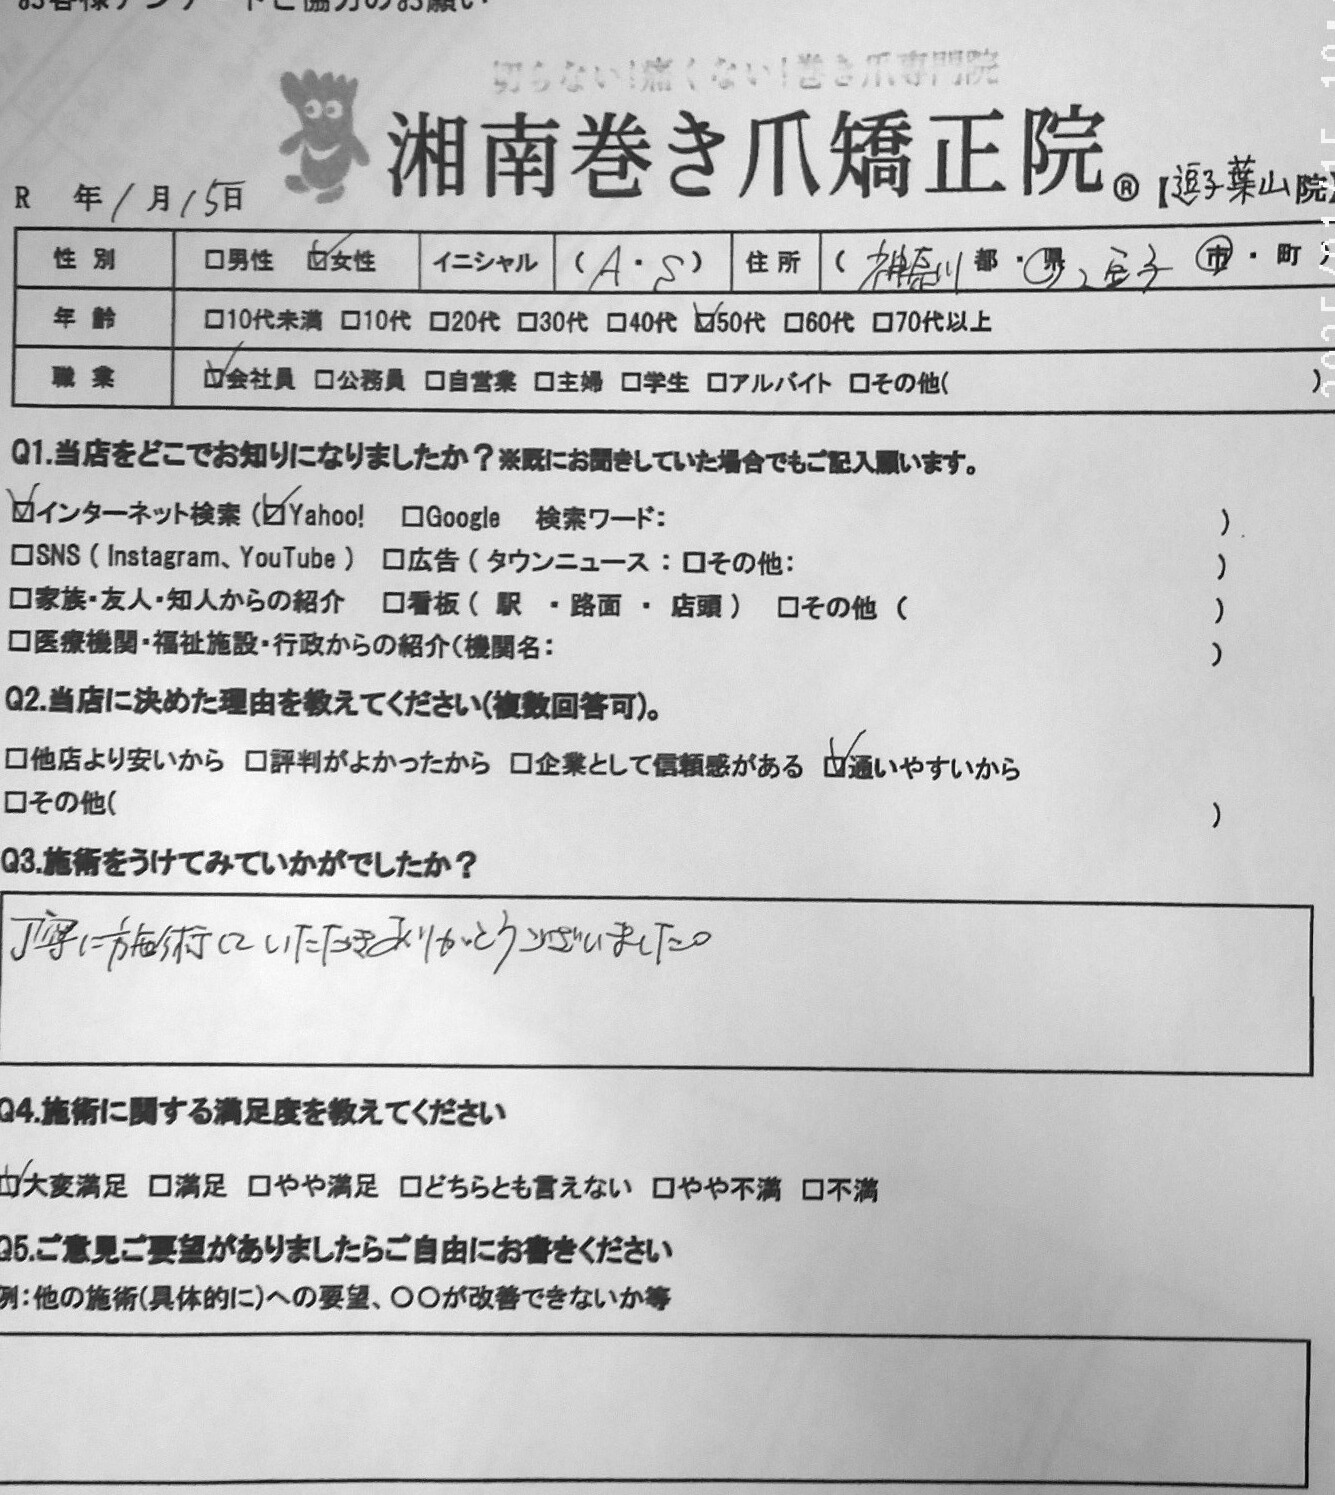 お客様アンケートご協力のお願い
切らない!痛くない!巻き爪専門院
湘南巻き爪矯正院® 【逗子葉山院】
R 年 1月 15日
性別 □男性 ☑女性 イニシャル ( A ・ S ) 住所 ( 神奈川 都・県 逗子 市・町
年齢 □10代未満 □10代 □20代 □30代 □40代 ☑50代 □60代 □70代以上
職業 ☑会社員 □公務員 □自営業 □主婦 □学生 □アルバイト □その他( )
Q1.当店をどこでお知りになりましたか?※既にお聞きしていた場合でもご記入願います。
☑インターネット検索 (☑Yahoo! □Google 検索ワード: )
□SNS ( Instagram、YouTube ) □広告 ( タウンニュース : □その他: )
□家族・友人・知人からの紹介 □看板 ( 駅 ・路面 ・ 店頭 ) □その他 ( )
□医療機関・福祉施設・行政からの紹介(機関名: )
Q2.当店に決めた理由を教えてください(複数回答可)。
□他店より安いから □評判がよかったから □企業として信頼感がある ☑通いやすいから
□その他( )
Q3.施術をうけてみていかがでしたか?
丁寧に施術していただきありがとうございました。
Q4.施術に関する満足度を教えてください
☑大変満足 □満足 □やや満足 □どちらとも言えない □やや不満 □不満
Q5.ご意見ご要望がありましたらご自由にお書きください
例:他の施術(具体的に)への要望、〇〇が改善できないか等